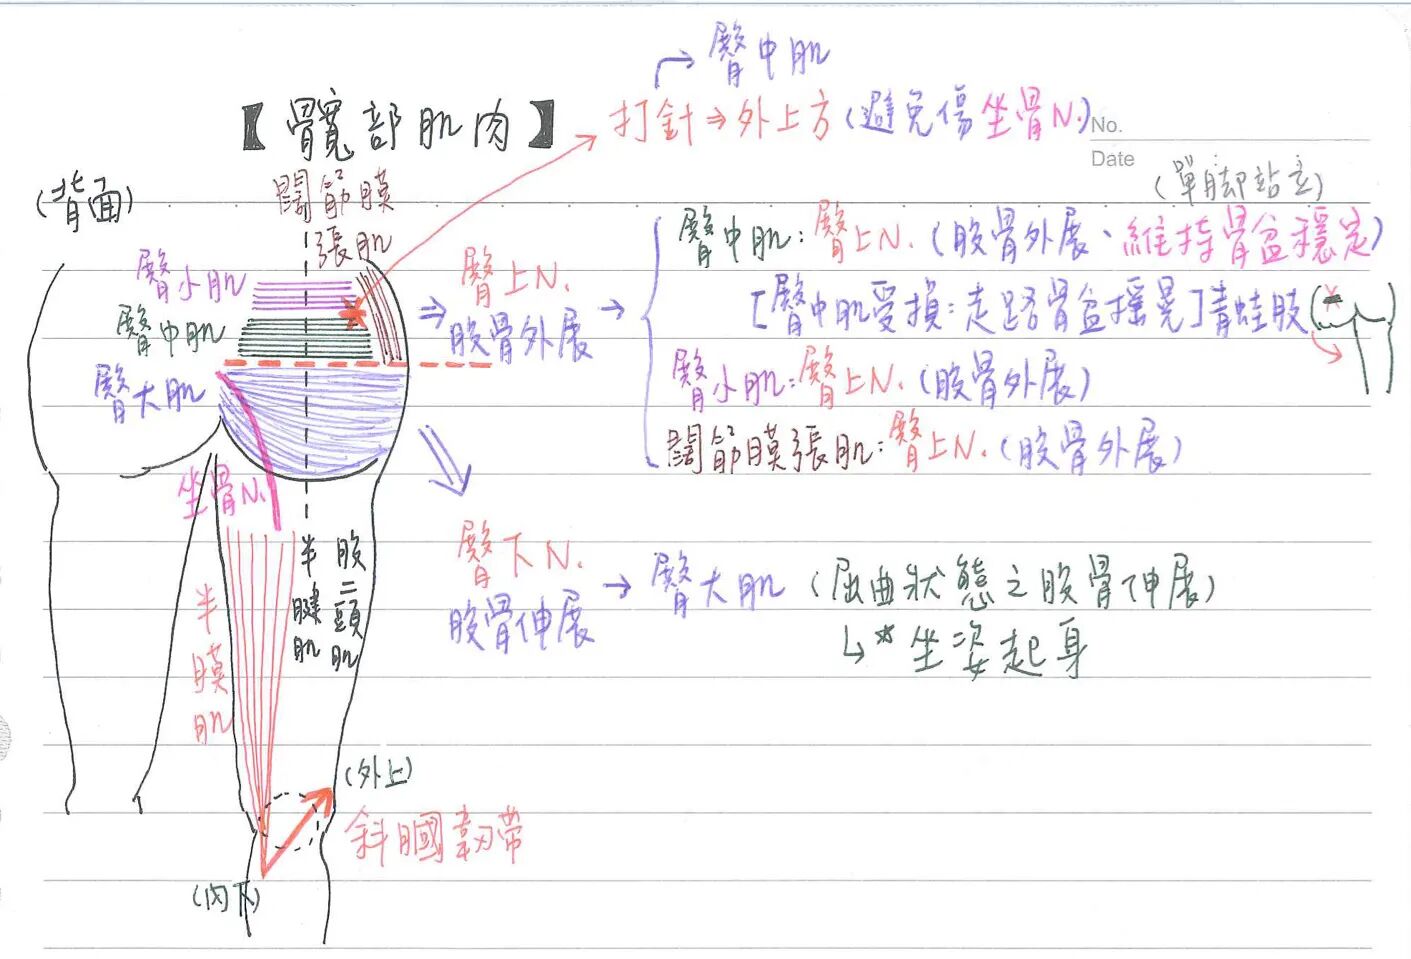 臀中肌
【髖部肌肉】
打針⇒外上方(避免傷坐骨N.)
No.
Date
(單脚站立)
(背面)
闊筋膜
張肌
臀小肌
臀中肌
臀大肌
臀上N.
股骨外展
臀中肌:臀上N.(股骨外展、維持骨盆穩定)
[臀中肌受損:走路骨盆搖晃]青蛙肢
臀小肌:臀上N.(股骨外展)
闊筋膜張肌:臀上N.(股骨外展)
坐骨N.
臀下N.
股骨伸展
臀大肌(屈曲狀態之股骨伸展)
*坐姿起身
半膜肌
半腱肌
股二頭肌
(外上)
斜膕韌帶
(內下)